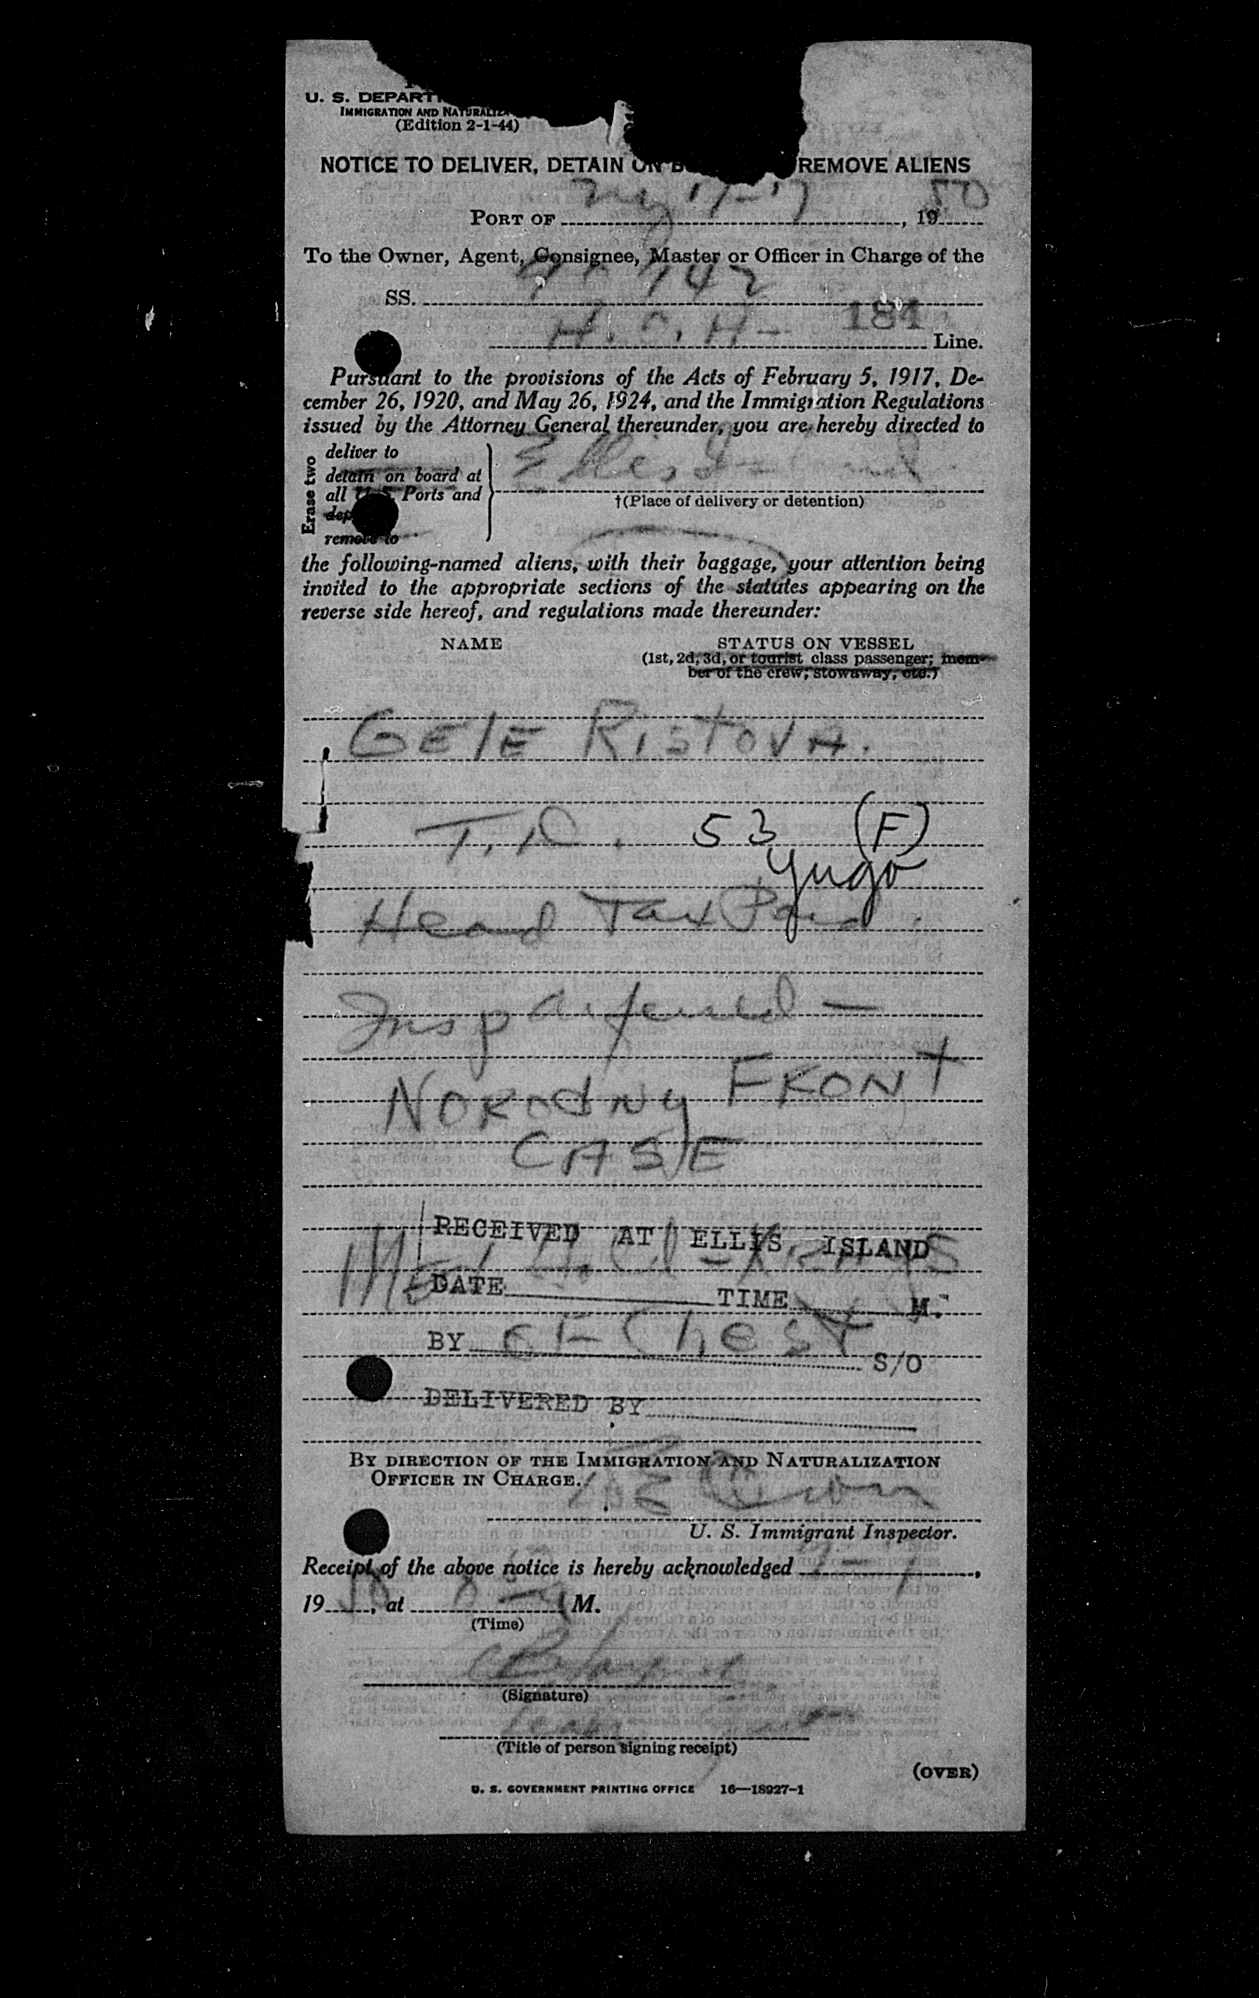 U. S. DEPART
IMMIGRATION AND NATURALIZ
(Edition 2-1-44)
NOTICE TO DELIVER, DETAIN ON B REMOVE ALIENS
PORT OF NY , 19 50
To the Owner, Agent, Consignee, Master or Officer in Charge of the
SS. 742
H. 184 Line.
Pursuant to the provisions of the Acts of February 5, 1917, De-
cember 26, 1920, and May 26, 1924, and the Immigration Regulations
issued by the Attorney General thereunder, you are hereby directed to
Erase two
deliver to
detain on board at
all U.S. Ports and
dep
remove to
Ellis Island
†(Place of delivery or detention)
the following-named aliens, with their baggage, your attention being
invited to the appropriate sections of the statutes appearing on the
reverse side hereof, and regulations made thereunder:
NAME STATUS ON VESSEL
(1st, 2d, 3d, or tourist class passenger; mem-
ber of the crew, stowaway, etc.)
GELE RISTOVA.
T. 53 (F)
Yugo
Head Tax Paid.
Insp deferred —
NORODNY FRONT
CASE
RECEIVED AT ELLIS ISLAND
DATE TIME M.
BY Chest S/O
DELIVERED BY
BY DIRECTION OF THE IMMIGRATION AND NATURALIZATION
OFFICER IN CHARGE.
U. S. Immigrant Inspector.
Receipt of the above notice is hereby acknowledged ,
19 50, at M.
(Time)
(Signature)
(Title of person signing receipt)
(OVER)
U. S. GOVERNMENT PRINTING OFFICE 16—18927-1